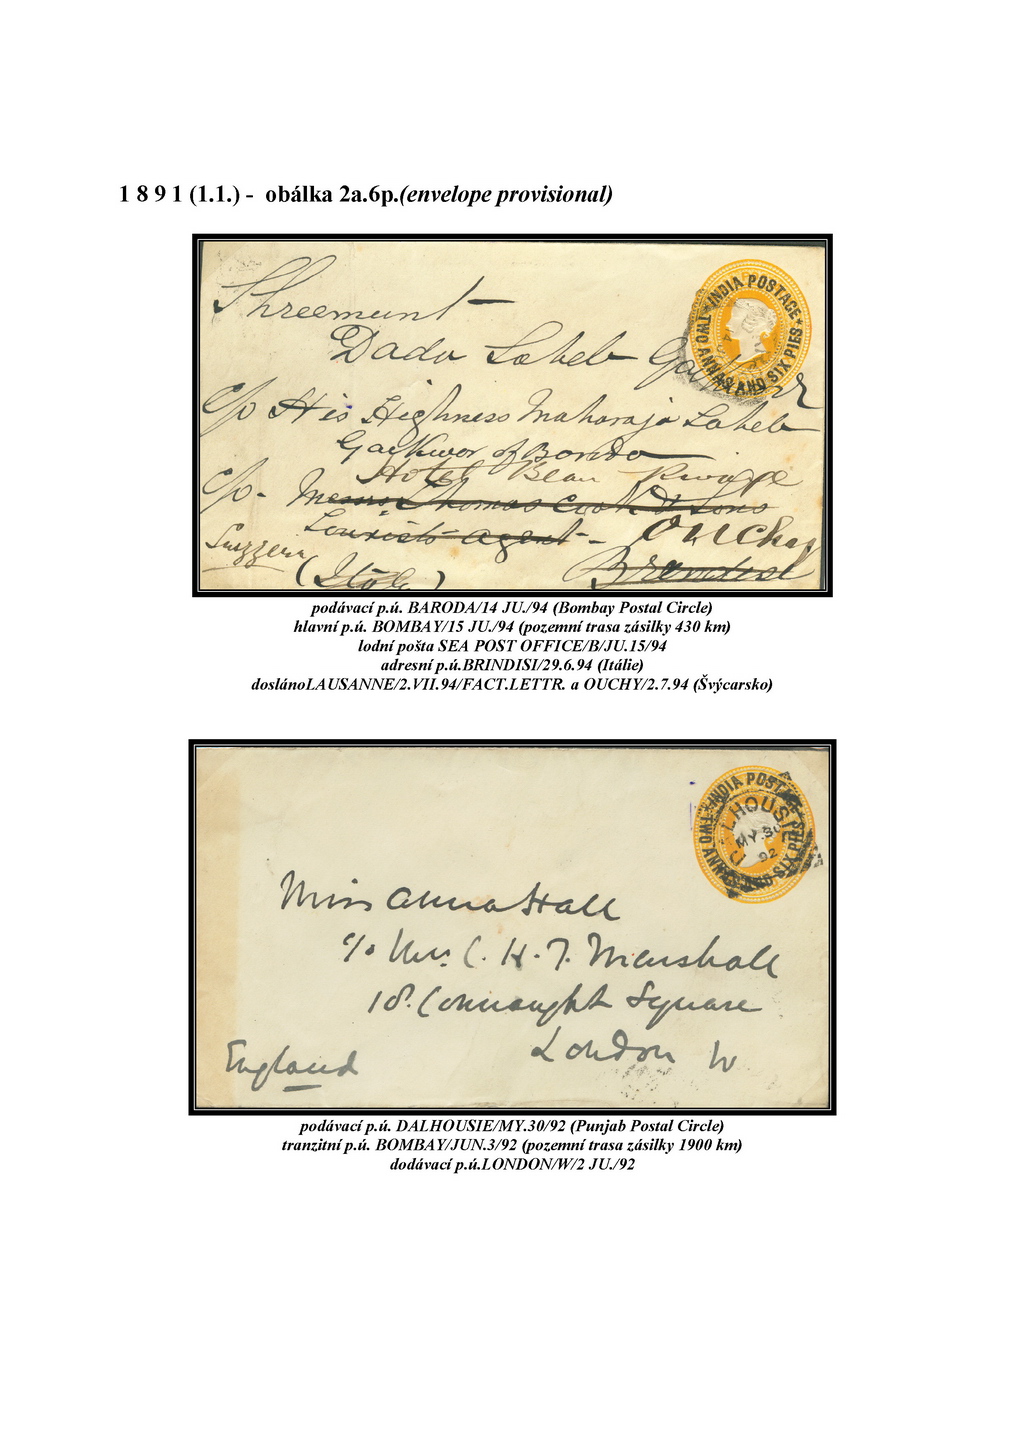 1 8 9 1 (1.1.) - obálka 2a.6p.(envelope provisional)
INDIA POSTAGE
TWO ANNAS AND SIX PIES
Shreemunt
Dada Saheb
c/o His Highness Maharaja Saheb
Gaekwor of Baroda
Hotel Beau Rivage
c/o - Messrs Thomas Cook & Sons
Tourists agent - Ouchy
Suizzera
(Italy) Brendisi
podávací p.ú. BARODA/14 JU./94 (Bombay Postal Circle)
hlavní p.ú. BOMBAY/15 JU./94 (pozemní trasa zásilky 430 km)
lodní pošta SEA POST OFFICE/B/JU.15/94
adresní p.ú.BRINDISI/29.6.94 (Itálie)
doslánoLAUSANNE/2.VII.94/FACT.LETTR. a OUCHY/2.7.94 (Švýcarsko)
INDIA POSTAGE
TWO ANNAS AND SIX PIES
DALHOUSIE
MY.30
92
Miss Anna Hall
c/o Mrs. C. H. T. Marshall
18. Connaught Square
London W
England
podávací p.ú. DALHOUSIE/MY.30/92 (Punjab Postal Circle)
tranzitní p.ú. BOMBAY/JUN.3/92 (pozemní trasa zásilky 1900 km)
dodávací p.ú.LONDON/W/2 JU./92